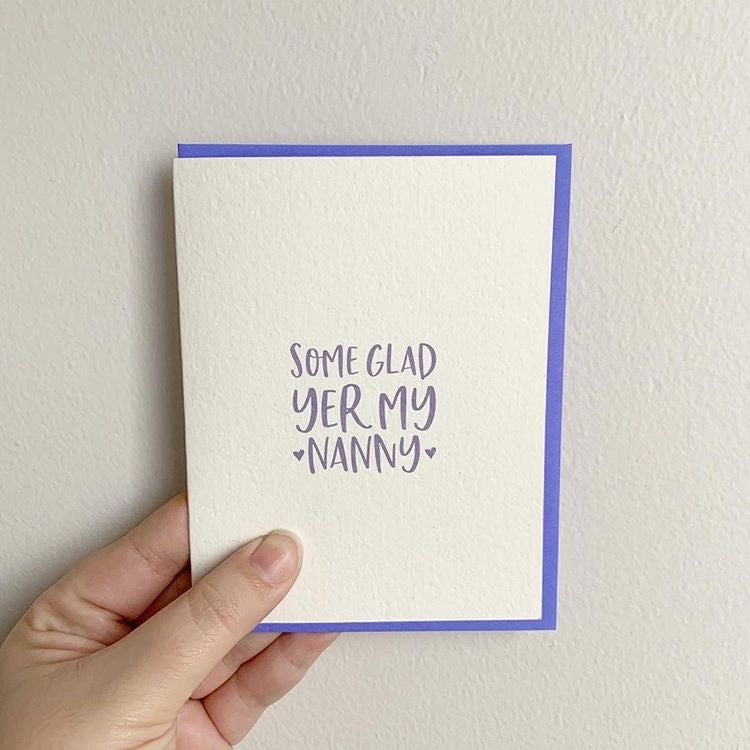 SOME GLAD
YER MY
♥NANNY♥